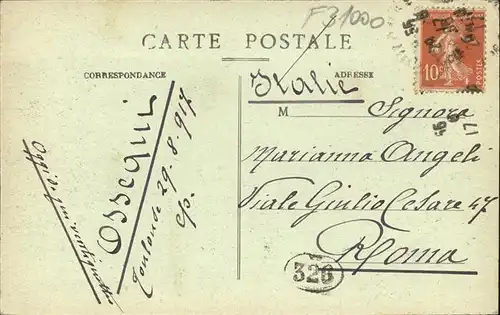 F31000
CARTE POSTALE
CORRESPONDANCE
ADRESSE
Italie
M Signora
Marianna Angeli
Viale Giulio Cesare 47
Roma
Ossequi
Toulouse 29.8.917
Oggi
10c
POSTES
326